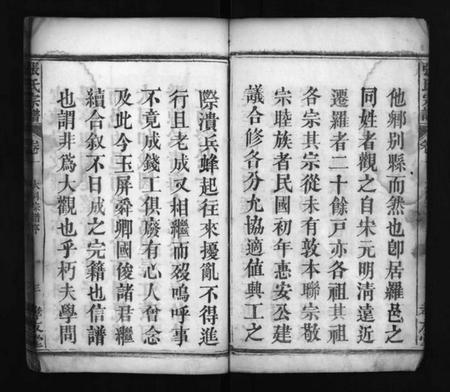 他鄉別縣而然也卽居羅邑之
同姓者觀之自宋元明清遠近
遷羅者二十餘戸亦各祖其祖
各宗其宗從未有敦本聯宗敬
宗睦族者民國初年惪安公建
議合修各分允協適值興工之
際潰兵蜂起往來擾亂不得進
行且老成又相繼而殁嗚呼事
不竟成錢工俱廢有心人會念
及此今玉屏舜卿國俊諸君繼
續合叙不日成之完籍也信譜
也謂非爲大觀也乎朽夫學問
張氏宗譜
卷一
孝友堂